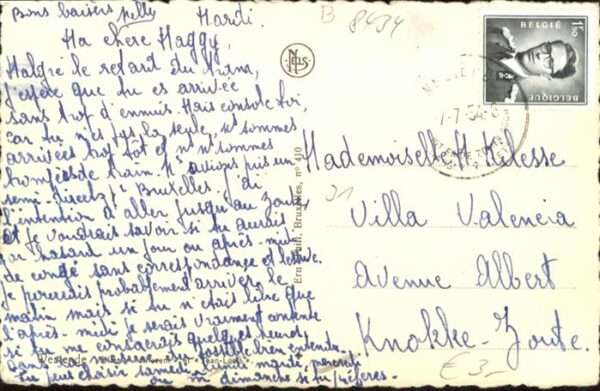 Bons baisers Nelly
Mardi.
Ma chère Maggy,
Malgré le retard du tram,
j'espère que tu es arrivée
sans trop d'ennuis. Mais console toi,
car tu n'es pas la seule, ns sommes
arrivées trop tôt et ns ns sommes
trompées de train. Ns avions pris un
semi-direct pr Bruxelles. J'ai
l'intention d'aller jusqu'au Zoute
et je voudrais savoir si tu aurais
par hasard un jour ou après-midi
de congé sans correspondance et lessive.
je pourrais probablement arriver le
matin mais si tu n'étais libre que
l'après-midi je serais vraiment contente
si tu me consacrais quelques heures
dans tu peux choisir samedi, lundi mardi, mercredi
ou dimanche si tu préfères.
B 8434
NELS
Ern. Thill, Bruxelles, n° 410
BELGIË
1F50
BELGIQUE
-7-7-54
Mademoiselle M. Kilesse
21
Villa Valencia
Avenue Albert
Knokke-Zoute.
€ 3-